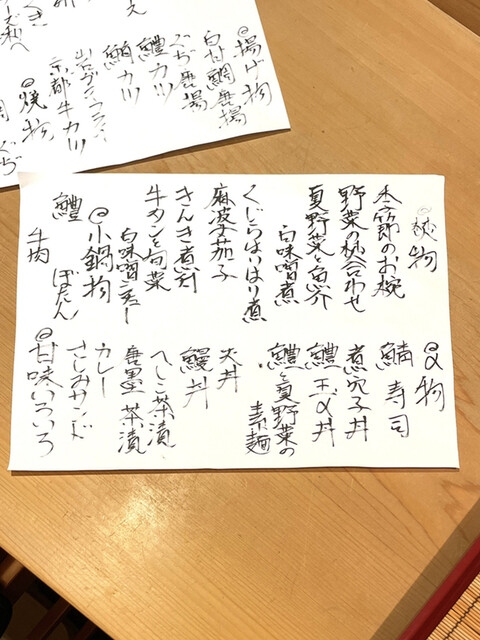 ◎揚げ物
白甘鯛唐揚
ぐぢ唐揚
鱧カツ
鮪カツ
京都牛カツ
◎焼物
◎椀物
季節のお椀
野菜の炊合わせ
夏野菜と魚介
白味噌煮
くじらはりはり煮
麻波茄子
きんき煮付
牛タンと旬菜
白味噌シチュー
◎小鍋物
鱧
牛肉
ぼたん
◎〆物
鱗寿司
煮穴子丼
鱧玉〆丼
鱧と夏野菜の
素麺
天丼
鰻丼
へしこ茶漬
唐墨茶漬
カレー
さしみサンド
◎甘味いろいろ